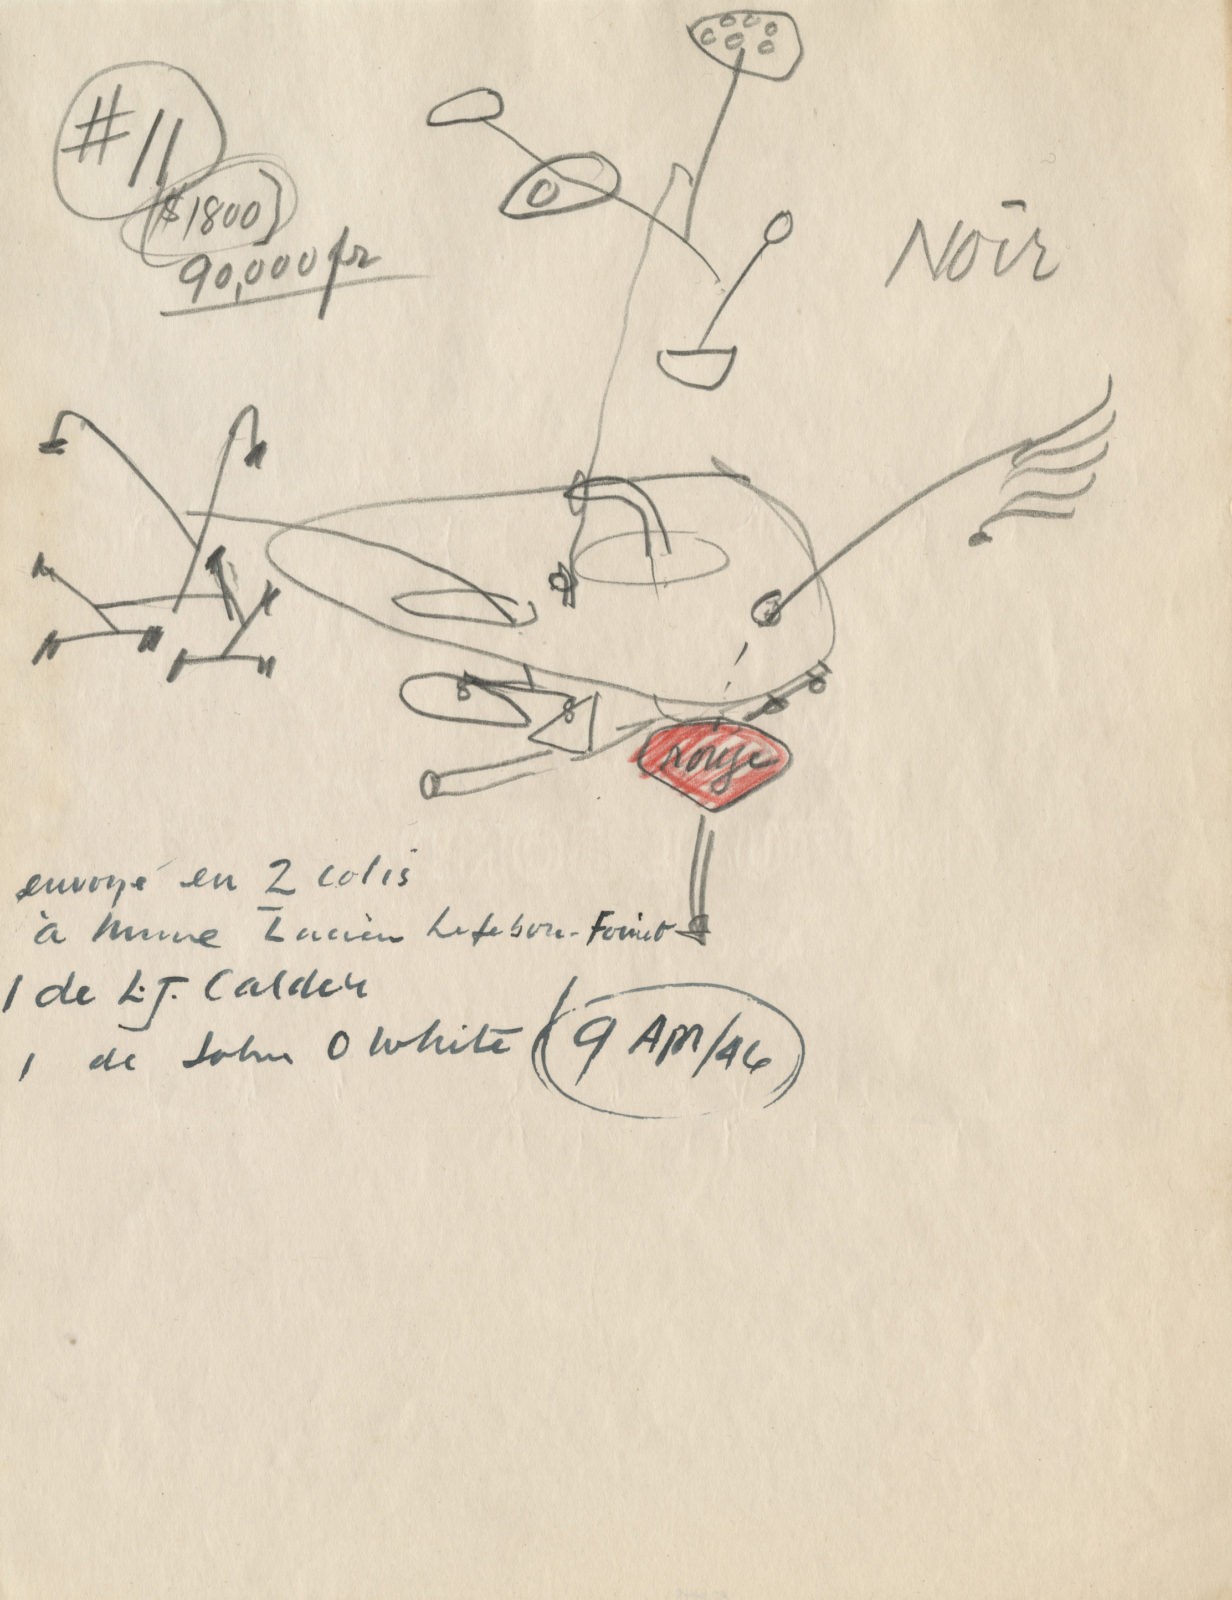 #11
($1800)
90,000 fr
Noir
rouge
envoyé en 2 colis
à Mme Lucien Lefebvre-Foinet
1 de L.J. Calder
1 de John O White
9 APR/46